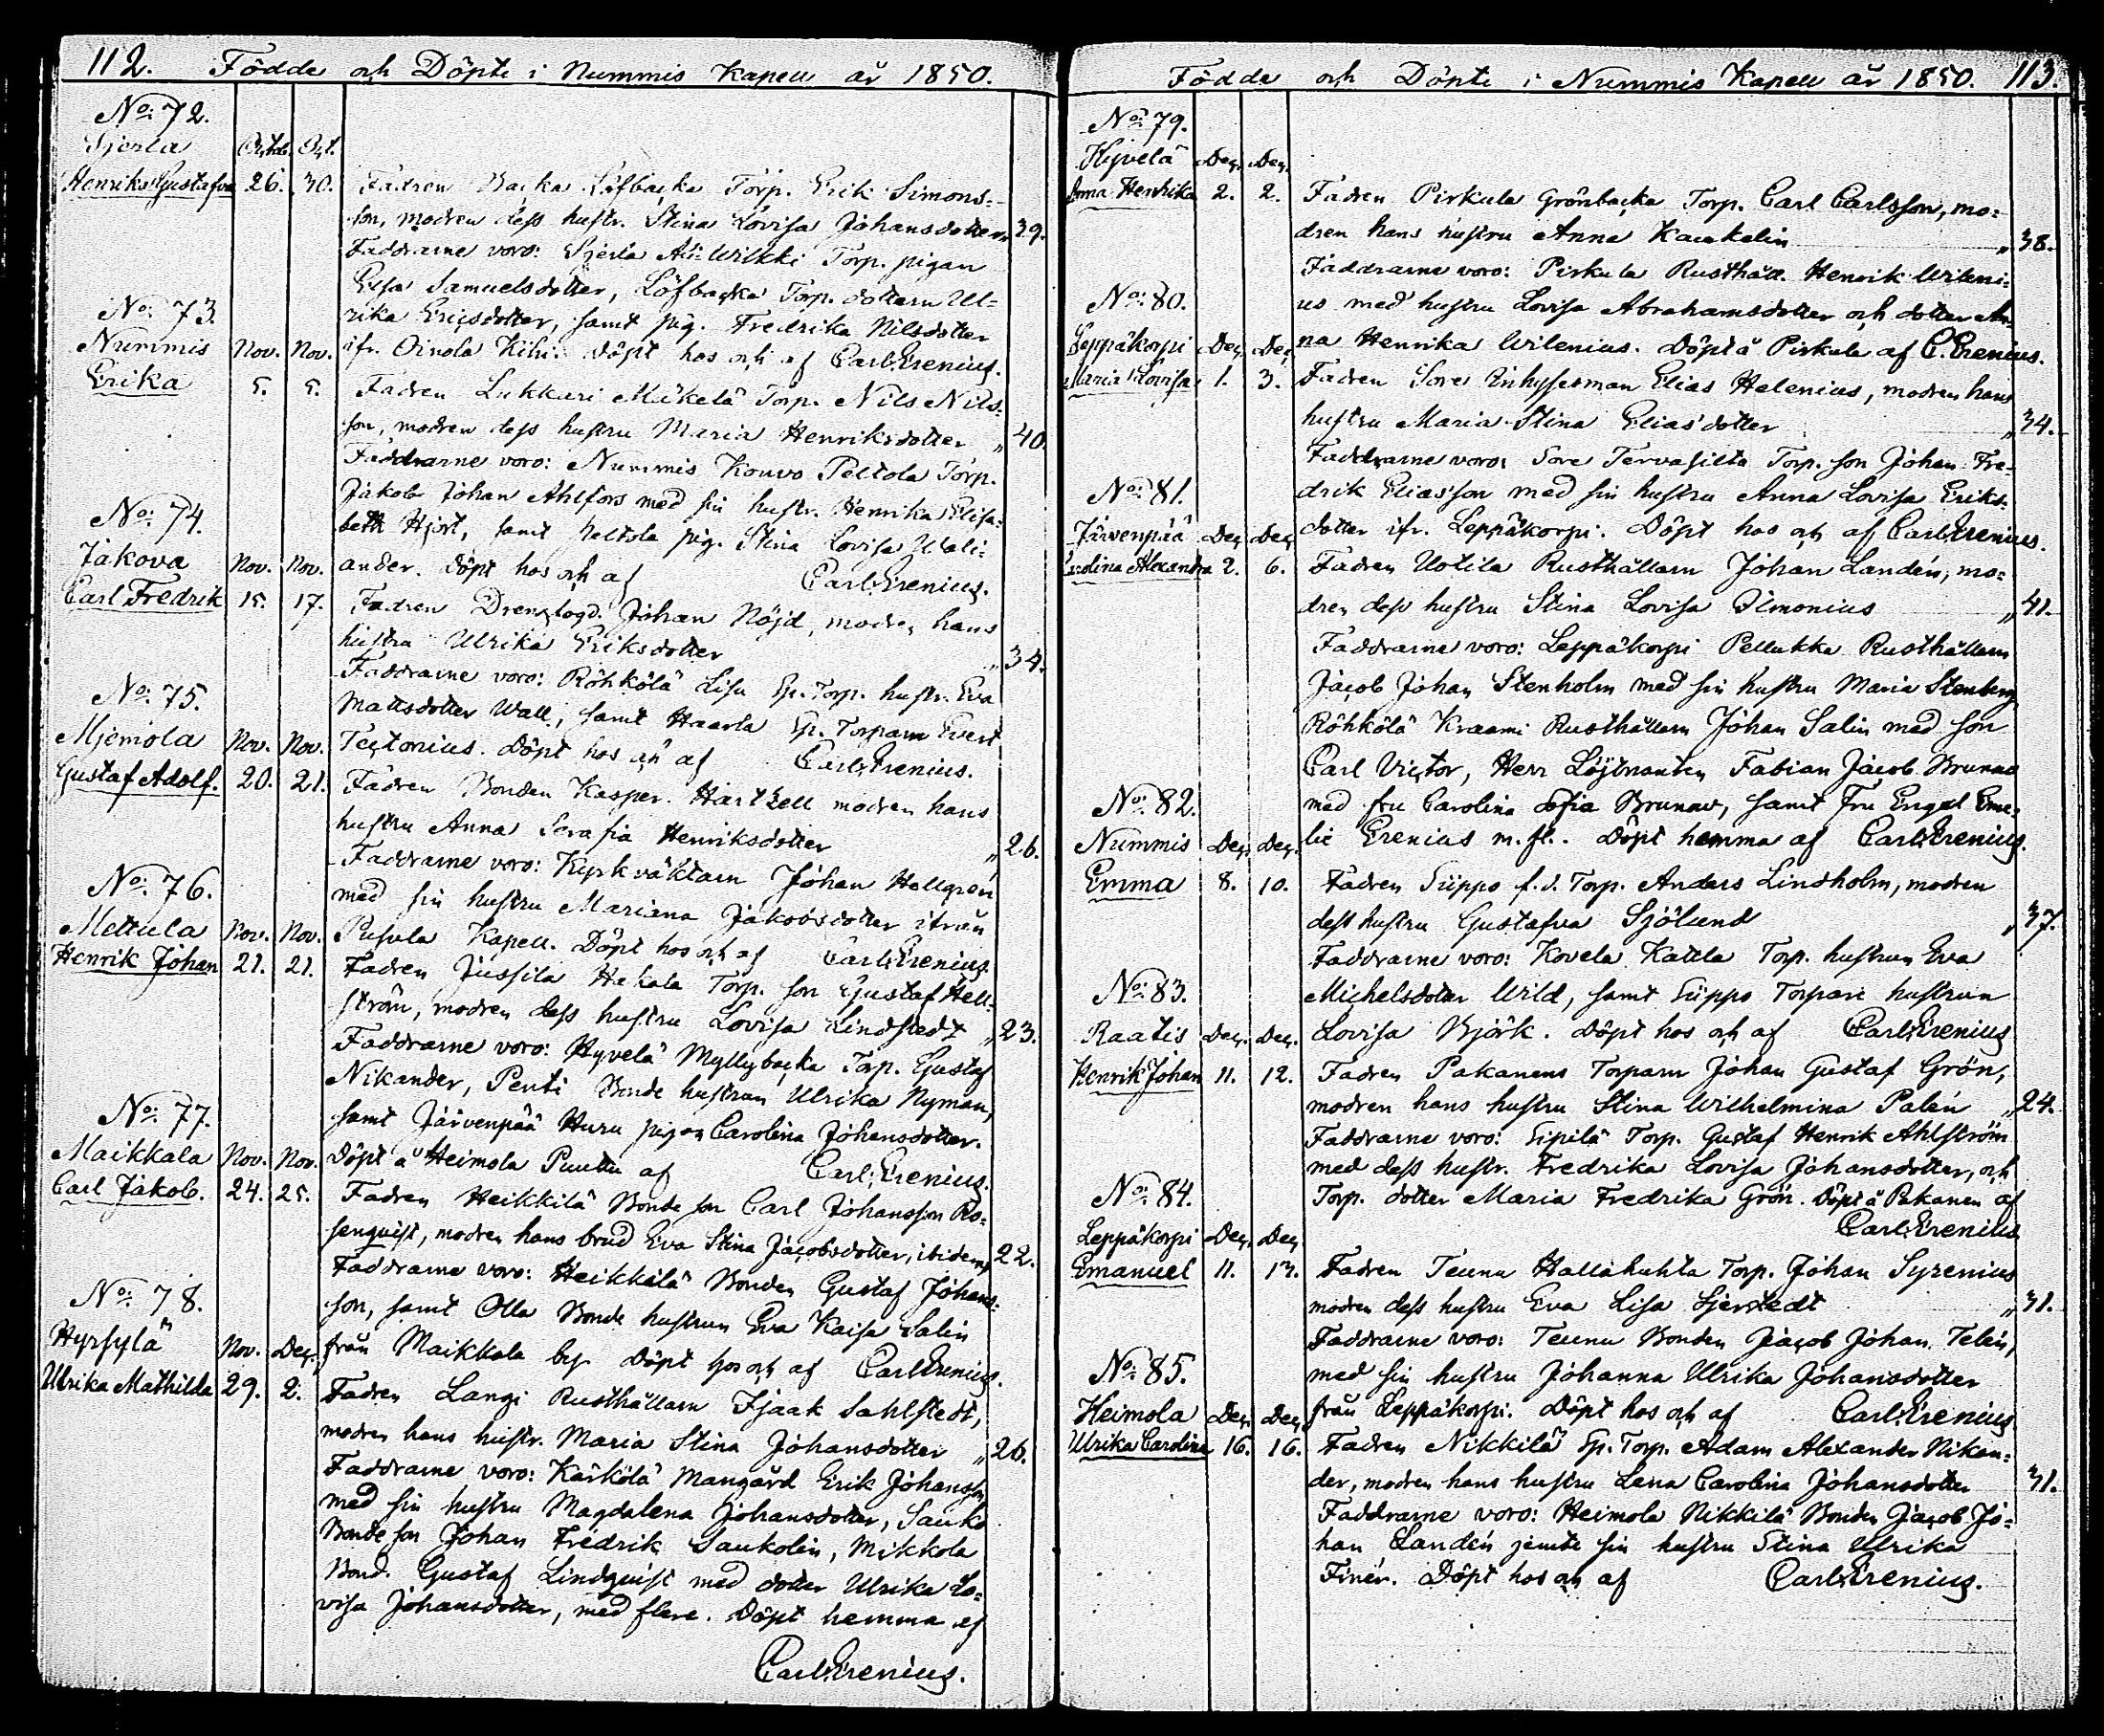 112. Födde och Döpte i Nummis Kapell år 1850.
No: 72.
Sjerla Octob. Oct.
Henrika Gustafva 26. 30. Fadren Backa Löfbacka Torp. Erik Simons-
son, modren dess hustr. Stina Lovisa Johansdotter „ 39.
Faddrarne voro: Sjerla Ali-Wikki Torp. pigan
Elsa Samuelsdotter, Löfbacka Torp. dottern Ul-
rika Ericsdotter, samt pig. Fredrika Nilsdotter
ifr. Oinola Kihi. Döpt hos och af Carl Erenius.
No: 73.
Nummis Nov. Nov.
Erika 5. 5. Fadren Lukkari Mäkelä Torp. Nils Nils-
son, modren dess hustru Maria Henriksdotter „ 40.
Faddrarne voro: Nummis Kouvo Peltola Torp.
Jakob Johan Ahlfors med sin hustr. Henrika Elisa-
beth Hjort, samt Peltola pig. Stina Lovisa Wali-
ander. Döpt hos och af Carl Erenius.
No: 74.
Jakova Nov. Nov.
Carl Fredrik 15. 17. Fadren Drenglogd. Johan Nöjd, modren hans
hustru Ulrika Eriksdotter „ 34.
Faddrarne voro: Röhkölä Lisu Sp. Torp. hustr. Eva
Mattsdotter Wall, samt Haarla Sp. Torparn Evert
Tectonius. Döpt hos och af Carl Erenius.
No: 75.
Mjemola Nov. Nov.
Gustaf Adolf. 20. 21. Fadren Bonden Kasper Hartzell modren hans
hustru Anna Serafia Henriksdotter „ 26.
Faddrarne voro: Kyrkväktarn Johan Hellgrén
med sin hustru Mariana Jakobsdotter ifrån
Pusula Kapell. Döpt hos och af Carl Erenius.
No: 76.
Mettula Nov. Nov.
Henrik Johan 21. 21. Fadren Jussila Hakala Torp. son Gustaf Hell-
ström, modren dess hustru Lovisa Lindstedt „ 23.
Faddrarne voro: Hyvelä Myllybacka Torp. Gustaf
Nikander, Penti Bonde hustrun Ulrika Nyman,
samt Järvenpää Huru pigan Carolina Johansdotter.
Döpt å Heimola Puuttu af Carl Erenius.
No: 77.
Maikkala Nov. Nov.
Carl Jakob. 24. 25. Fadren Heikkilä Bonde son Carl Johansson Ro-
senqvist, modren hans brud Eva Stina Jacobsdotter, ibidem „ 22.
Faddrarne voro: Heikkilä Bonden Gustaf Johans-
son, samt Olla Bonde hustrun Eva Kaisa Salin
från Maikkala by. Döpt hos och af Carl Erenius.
No: 78.
Hyrsylä Nov. Dec.
Ulrika Mathilda 29. 2. Fadren Langi Rusthållarn Isaak Sahlstedt,
modren hans hustr. Maria Stina Johansdotter „ 26.
Faddrarne voro: Kärkölä Mangård Erik Johansson
med sin hustru Magdalena Johansdotter, Sauko
Bonde son Johan Fredrik Saukolin, Mikkola
Bond. Gustaf Lindqvist med dotter Ulrika Lo-
visa Johansdotter, med flere. Döpt hemma af
Carl Erenius.
Födde och Döpte i Nummis Kapell år 1850. 113.
No: 79.
Hyvelä Dec. Dec.
Anna Henrika 2. 2. Fadren Pirkula Grönbacka Torp. Carl Carlsson, mo-
dren hans hustru Anna Kaukelin „ 38.
Faddrarne voro: Pirkula Rusthåll. Henrik Wileni-
us med hustru Lovisa Abrahamsdotter och dotter An-
na Henrika Wilenius. Döpt å Pirkula af C. Erenius.
No: 80.
Leppäkorpi Dec. Dec.
Maria Lovisa 1. 3. Fadren Sore Inhysesman Elias Helenius, modren hans
hustru Maria Stina Elias'dotter „ 34.
Faddrarne voro: Sore Tervasilta Torp. son Johan Fre-
drik Elias'son med sin hustru Anna Lovisa Eriks-
dotter ifr. Leppäkorpi. Döpt hos och af Carl Erenius.
No: 81.
Järvenpää Dec. Dec.
Carolina Alexandra 2. 6. Fadren Uotila Rusthållarn Johan Landén, mo-
dren dess hustru Stina Lovisa Simonius „ 41.
Faddrarne voro: Leppäkorpi Pellukka Rusthållarn
Jacob Johan Stenholm med sin hustru Maria Stenberg
Röhkölä Kraami Rusthållarn Johan Salin med son
Carl Victor, Herr Löjtnanten Fabian Jacob Brunow
med fru Carolina Sofia Brunow, samt Fru Engel Eme-
lie Erenius m. fl.. Döpt hemma af Carl Erenius.
No: 82.
Nummis Dec. Dec.
Emma 8. 10. Fadren Siippo f.d. Torp. Anders Lindholm, modren
dess hustru Gustafva Sjölund „ 37.
Faddrarne voro: Kovela Katila Torp. hustrun Eva
Michelsdotter Wild, samt Siippo Torpare hustrun
Lovisa Björk. Döpt hos och af Carl Erenius
No: 83.
Raatis Dec. Dec.
Henrik Johan 11. 12. Fadren Pakanens Torparn Johan Gustaf Grön,
modren hans hustru Stina Wilhelmina Palén „ 24.
Faddrarne voro: Sipilä Torp. Gustaf Henrik Ahlström
med dess hustr. Fredrika Lovisa Johansdotter, och
Torp. dotter Maria Fredrika Grön. Döpt å Pakanen af
Carl Erenius
No: 84.
Leppäkorpi Dec. Dec.
Emanuel 11. 13. Fadren Teunu Hallahuhta Torp. Johan Syrenius
modren dess hustru Eva Lisa Sjerstedt „ 31.
Faddrarne voro: Teunu Bonden Jacob Johan Telén,
med sin hustru Johanna Ulrika Johansdotter
från Leppäkorpi. Döpt hos och af Carl Erenius
No: 85.
Heimola Dec. Dec.
Ulrika Carolina 16. 16. Fadren Nikkilä Sp. Torp. Adam Alexander Nikan-
der, modren hans hustru Lena Carolina Johansdotter 31.
Faddrarne voro: Heimola Nikkilä Bonden Jacob Jo-
han Landén jemte sin hustru Stina Ulrika
Finér. Döpt hos och af Carl Erenius.